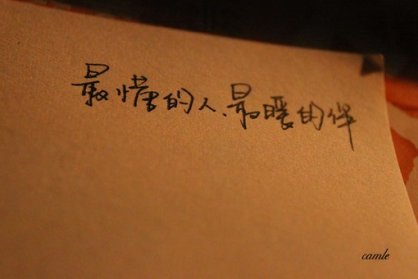 最懂的人.最暖的伴
camle